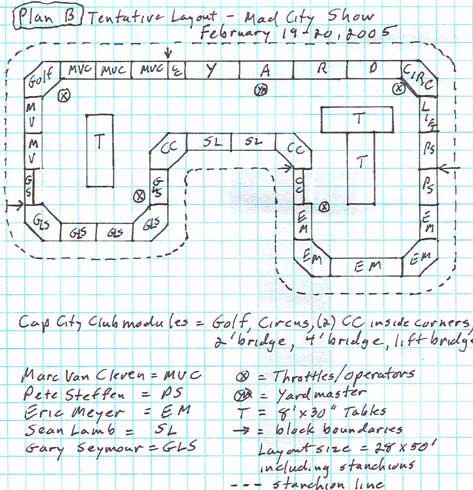 Plan B Tentative Layout - Mad City Show
February 19-20, 2005
Golf MVC MVC MVC E Y A R D CIRC
MV
MV
GLS
GLS GLS GLS GLS
GLS
T
CC SL SL CC
CC
T
T
L
PS
PS
EM
EM
EM EM EM
Cap City Club modules = Golf, Circus, (2) CC inside corners,
2' bridge, 4' bridge, lift bridge
Marc Van Cleven = MVC
Pete Steffen = PS
Eric Meyer = EM
Sean Lamb = SL
Gary Seymour = GLS
ⓧ = Throttles/operators
= Yardmaster
T = 8'x30" Tables
→ = block boundaries
Layout size = 28 x 50'
including stanchions
--- stanchion line